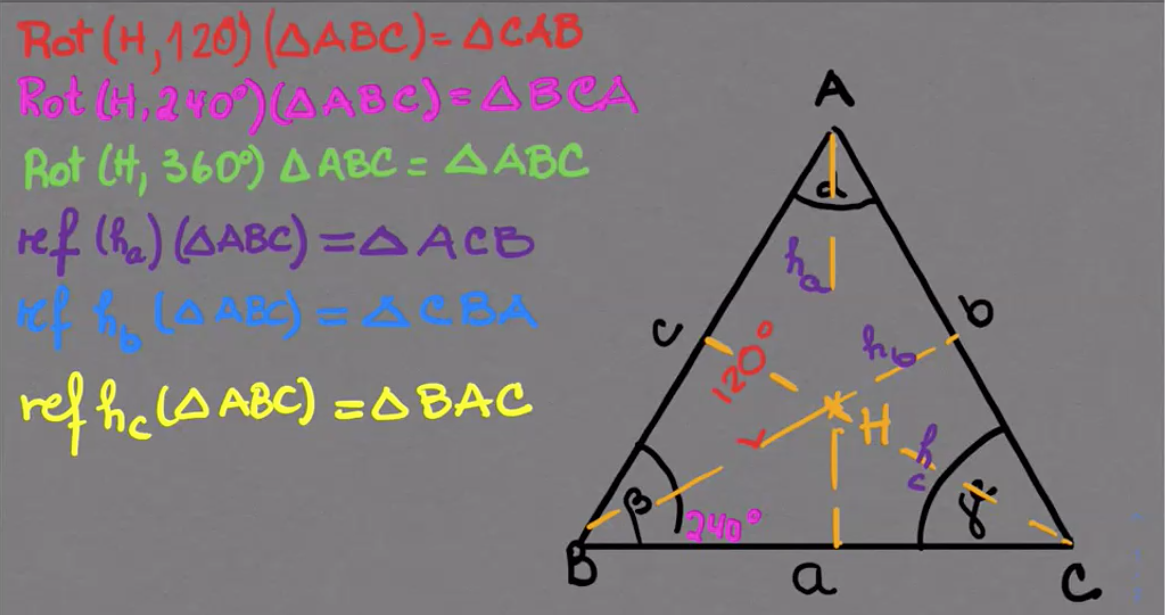 Rot (H, 120°) (△ABC) = △CAB
Rot (H, 240°) (△ABC) = △BCA
Rot (H, 360°) △ABC = △ABC
ref (hₐ) (△ABC) = △ACB
ref h_b (△ABC) = △CBA
ref h_c (△ABC) = △BAC
A
α
hₐ
c
b
120°
h_b
H
h_c
β
γ
240°
B
a
C